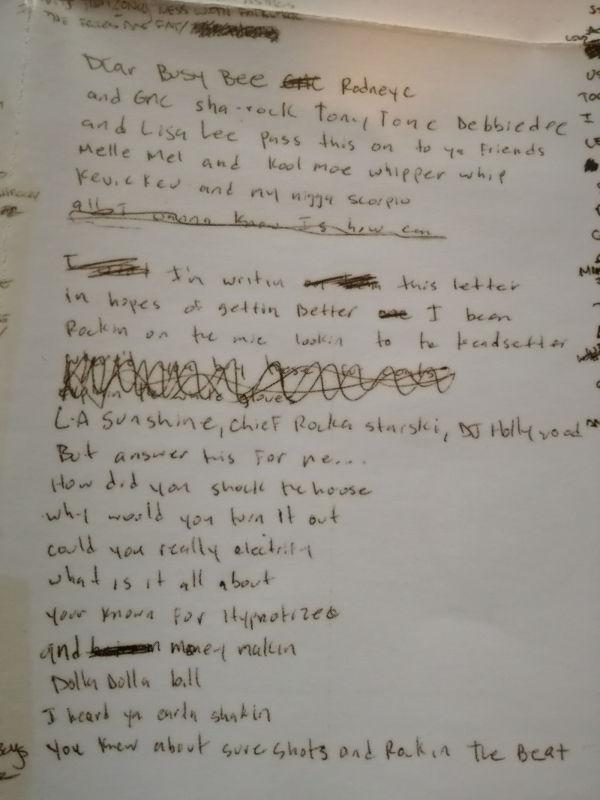 THE FRIES ARE FAT/
Dear Busy Bee Rodney c
and GMC sha-rock Tony Tone Debbiedee
and Lisa Lee pass this on to ya friends
Melle Mel and Kool moe whipper whip
Kev,c kev and my nigga scorpio
all I wanna know Is how can
I I'm writin this letter
in hopes of gettin Better I been
Rockin on the mic lookin to te tendsetter
L.A Sunshine, Chief Rocka starski, DJ Hollywood
But answer this For me...
How did you shock the house
why would you turn It out
could you really electrify
what is it all about
your known For Hypnotizes
and money makin
Dolla Dolla bill
I heard ya earth shakin
you knew about sure shots and Rockin The Beat